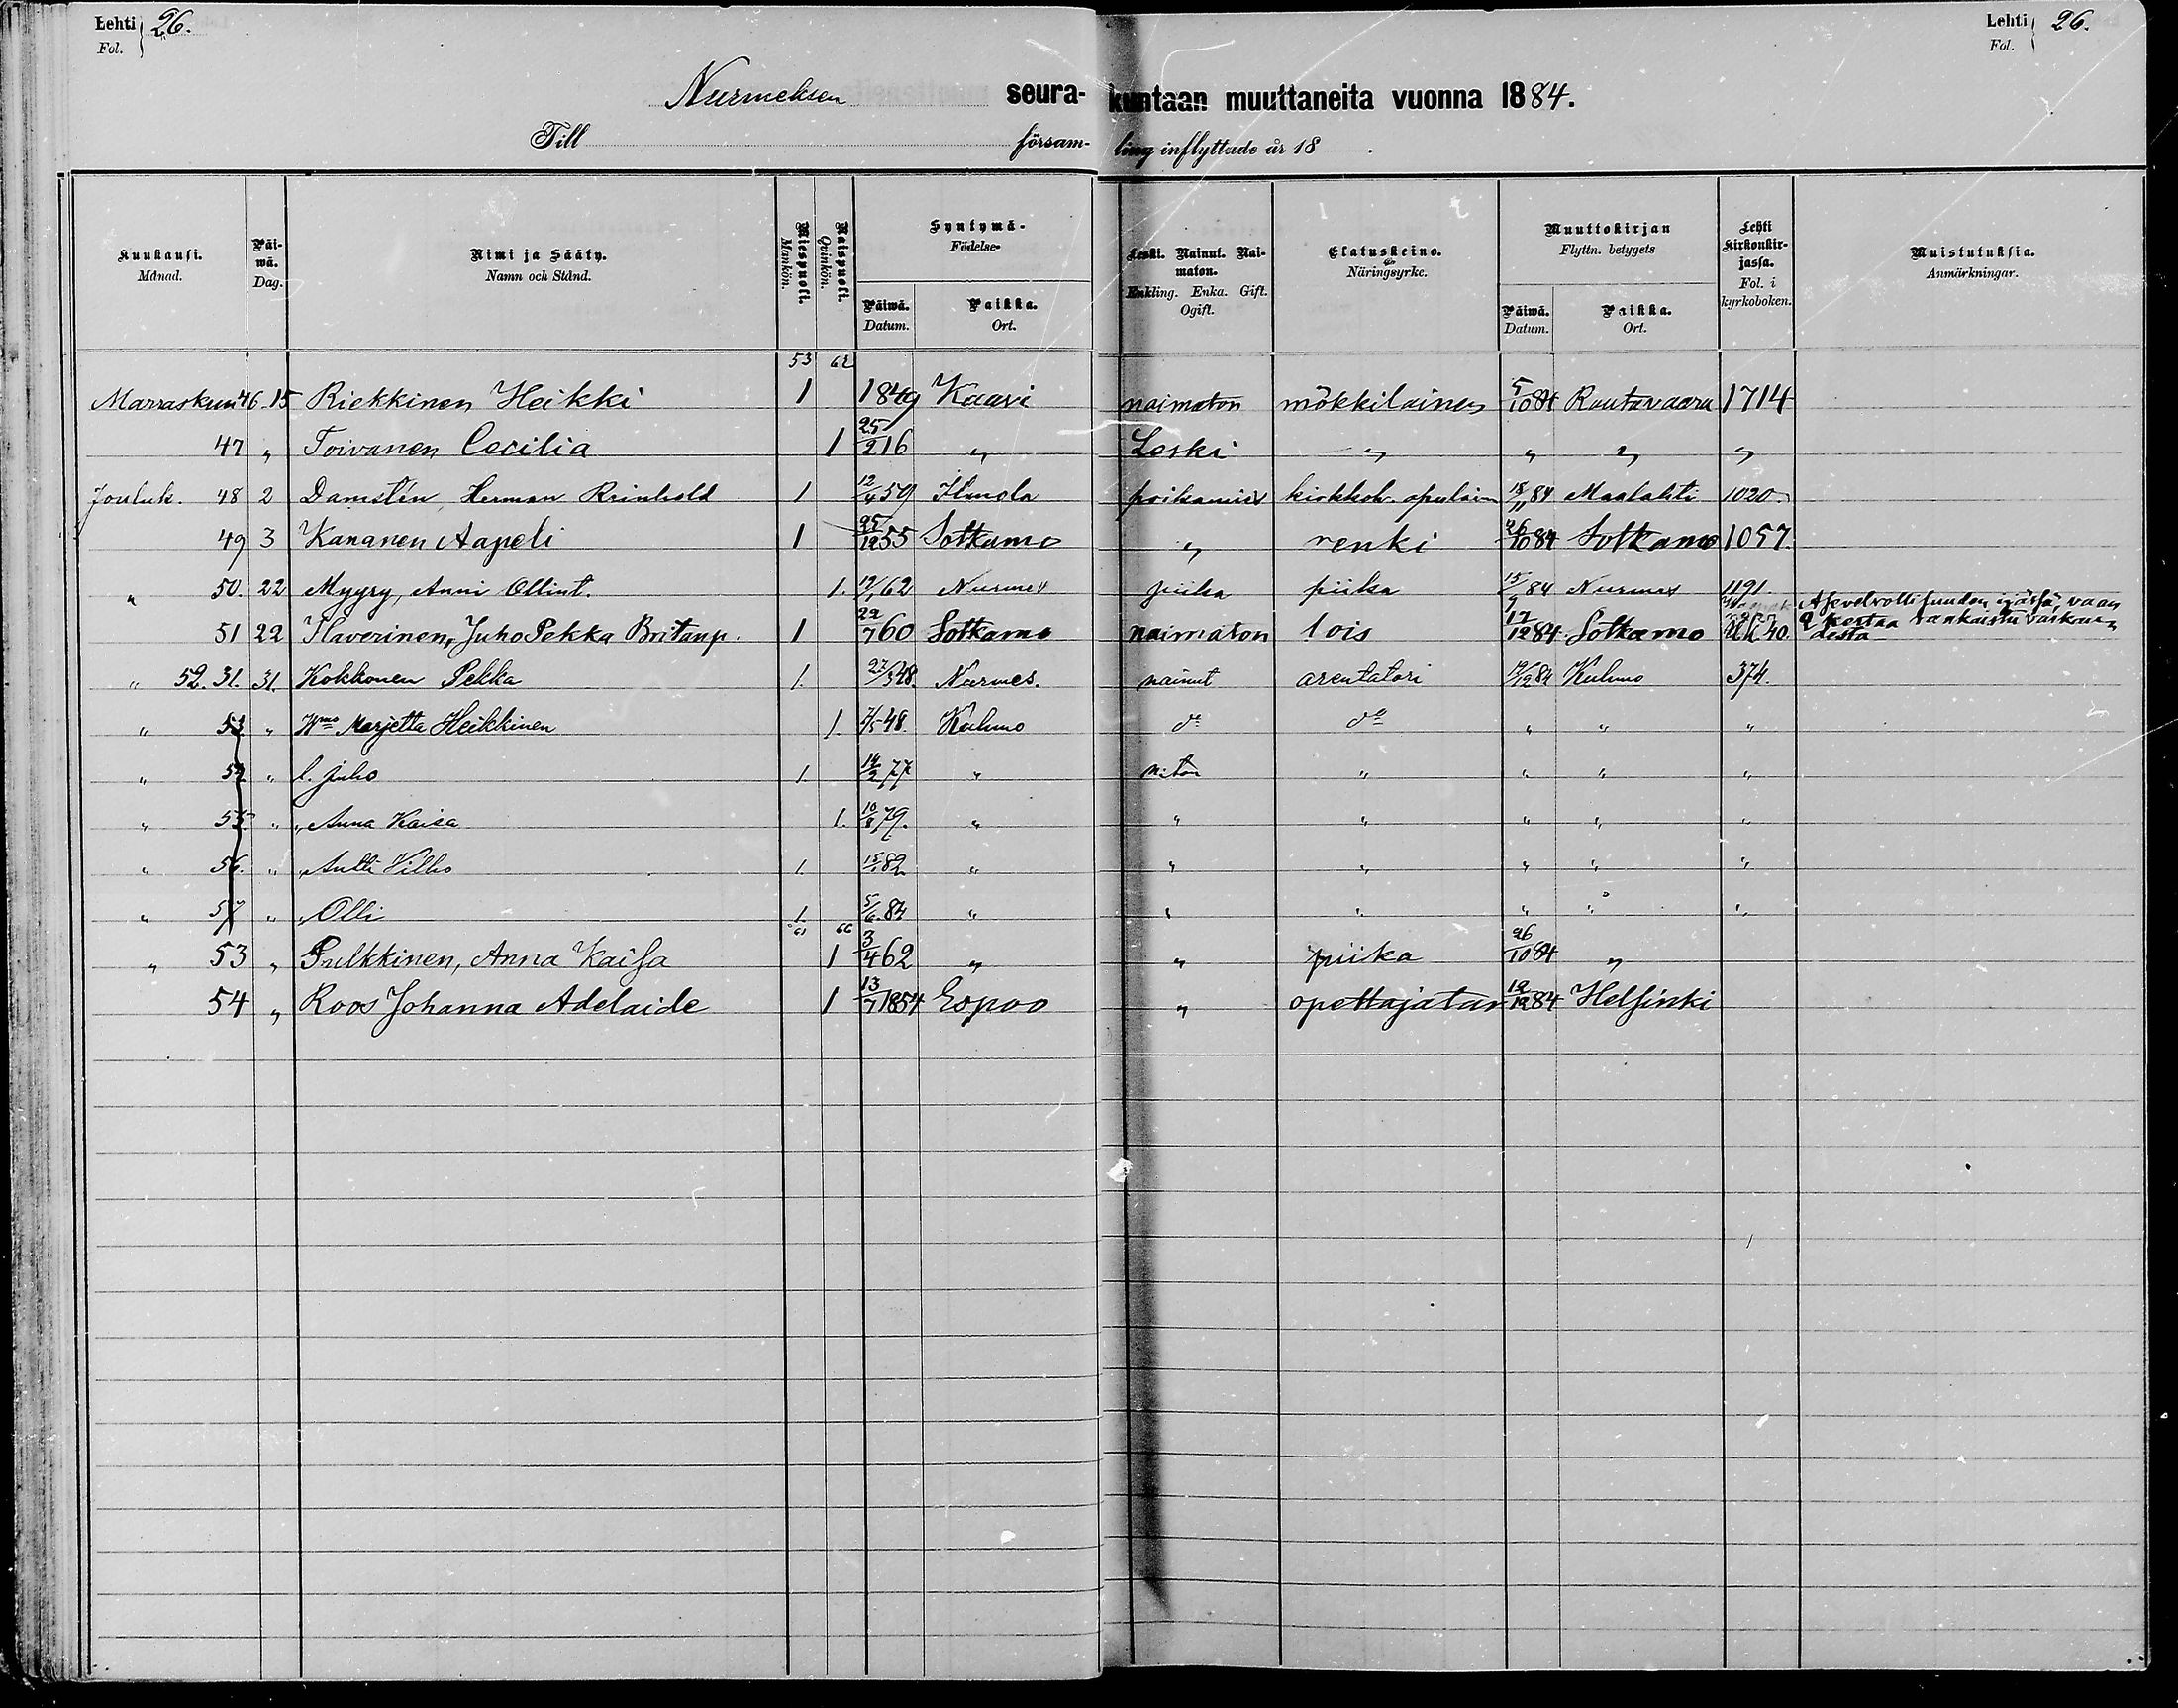 Lehti 26.
Fol.
Lehti 26.
Fol.
Nurmeksen seura- kuntaan muuttaneita vuonna 1884.
Till församling inflyttade år 18 .
Kuukausi. Månad. Päiwä. Dag. Nimi ja Sääty. Namn och Stånd. Miespuoli. Mankön. Naispuoli. Qvinkön. Syntymä- Födelse- Päiwä. Datum. Paikka. Ort. Leski. Nainut. Naimaton. Enkling. Enka. Gift. Ogift. Elatuskeino. Näringsyrke. Muuttokirjan Flyttn. betygets Päiwä. Datum. Paikka. Ort. Lehti Kirkonkirjassa. Fol. i kyrkoboken. Muistutuksia. Anmärkningar.
53 62
Marraskun 46 15 Riekkinen Heikki 1 1849 Kaavi naimaton mökkiläinen 5/10 84 Rautavaara 1714
47 " Toivanen Cecilia 1 25/2 16 " Leski " " " "
Jouluk. 48 2 Damstén, Herman Reinhold 1 12/4 59 poikamies kirkkoh. apulainen 18/11 84 Maalahti 1020
49 3 Kananen Aapeli 1 25/12 55 Sotkamo " renki 26/10 84 Sotkamo 1057.
" 50. 22 Myyry, Anni Ollint. 1. 12/1 62 Nurmes piika piika 15/9 84 Nurmes 1191.
51 22 Haverinen, Juho Pekka Britanp. 1 22/7 60 Sotkamo naimaton lois 17/12 84 Sotkamo 40. Asevelvollisuuden ijässä, vaan 2 kertaa rankaistu varkaudesta
" 52. 31. 31. Kokkonen Pekka 1. 27/3 48. Nurmes. nainut arentatori 19/12 84 Kuhmo 374.
" 53 " Wmo Marjetta Heikkinen 1. 7/5 48. Kuhmo do do " " "
" 54 " l. Juho 1. 14/2 77 " n:ton " " " "
" 55 " " Anna Kaisa 1. 10/8 79. " " " " " "
" 56. " " Antti Vilho 1. 15/1 82 " " " " " "
" 57 " " Olli 1. 5/6 84 " " " " " "
61 66
" 53 " Pulkkinen, Anna Kaisa 1 3/4 62 " " piika 26/10 84 "
54 " Roos Johanna Adelaide 1 13/7 1854 Espoo " opettajatar 12/12 84 Helsinki